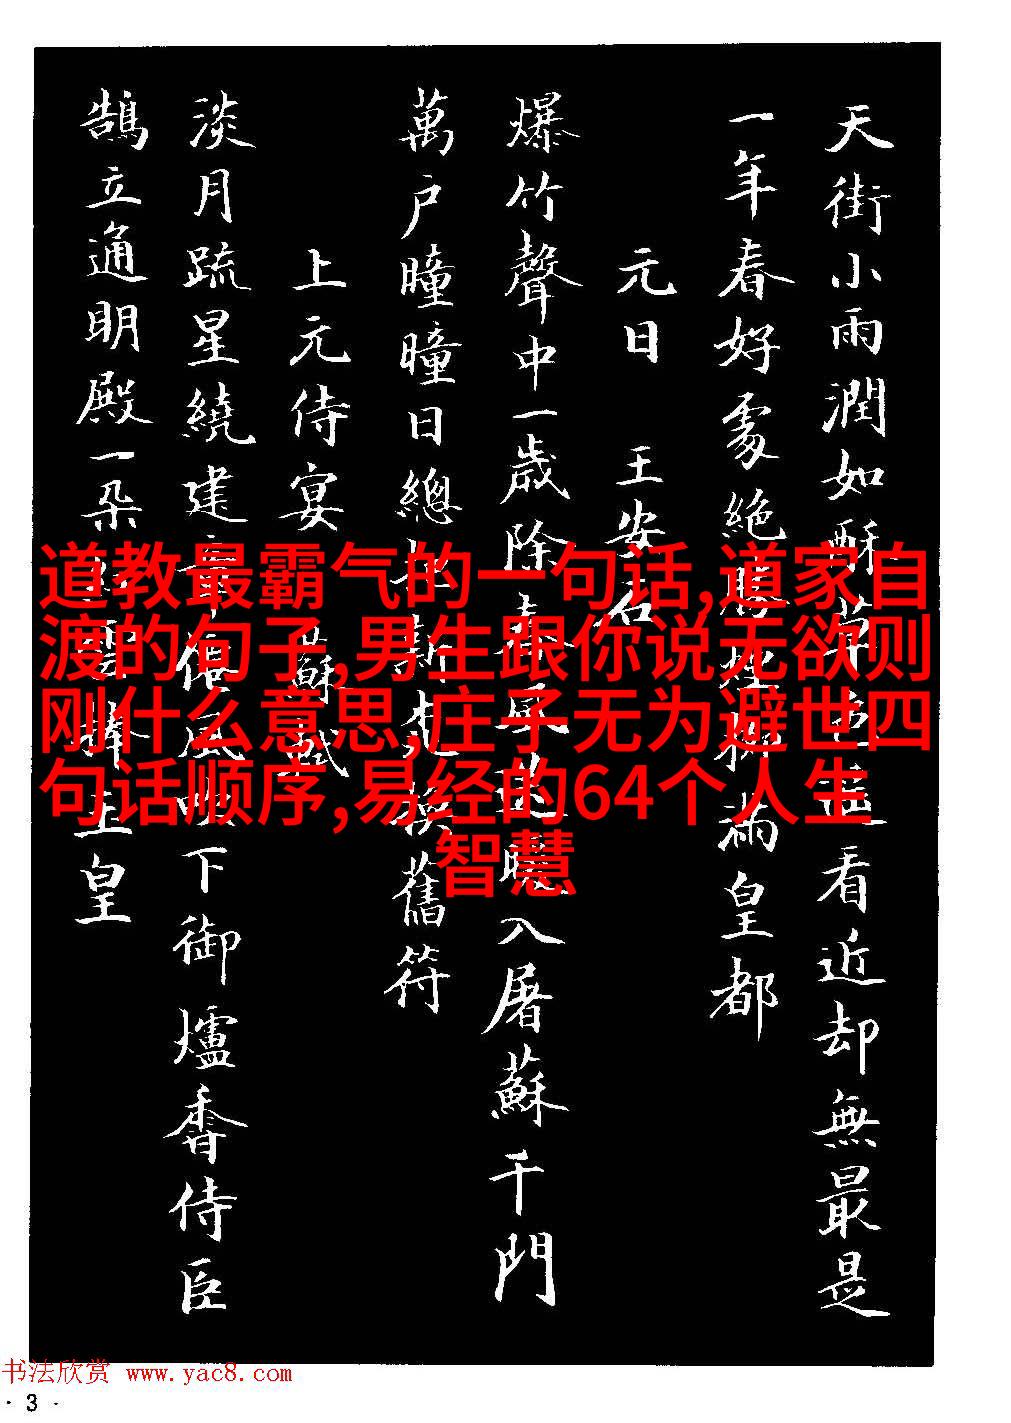 天街小雨潤如酥草看近却無最是
一年春好處絶勝煙柳滿皇都
元日 王安石
爆竹聲中一歲除春暖入屠蘇千門
萬户曈曈日總把新換舊符
上元侍宴 蘇軾
淡月疏星繞建章風吹下御爐香侍臣
鵠立通明殿一朵雲捧玉皇
道教最霸气的一句话,道家自
渡的句子,男生跟你说无欲则
刚什么意思,庄子无为避世四
句话顺序,易经的64个人生
智慧
书法欣赏 www.yac8.com
· 3 ·